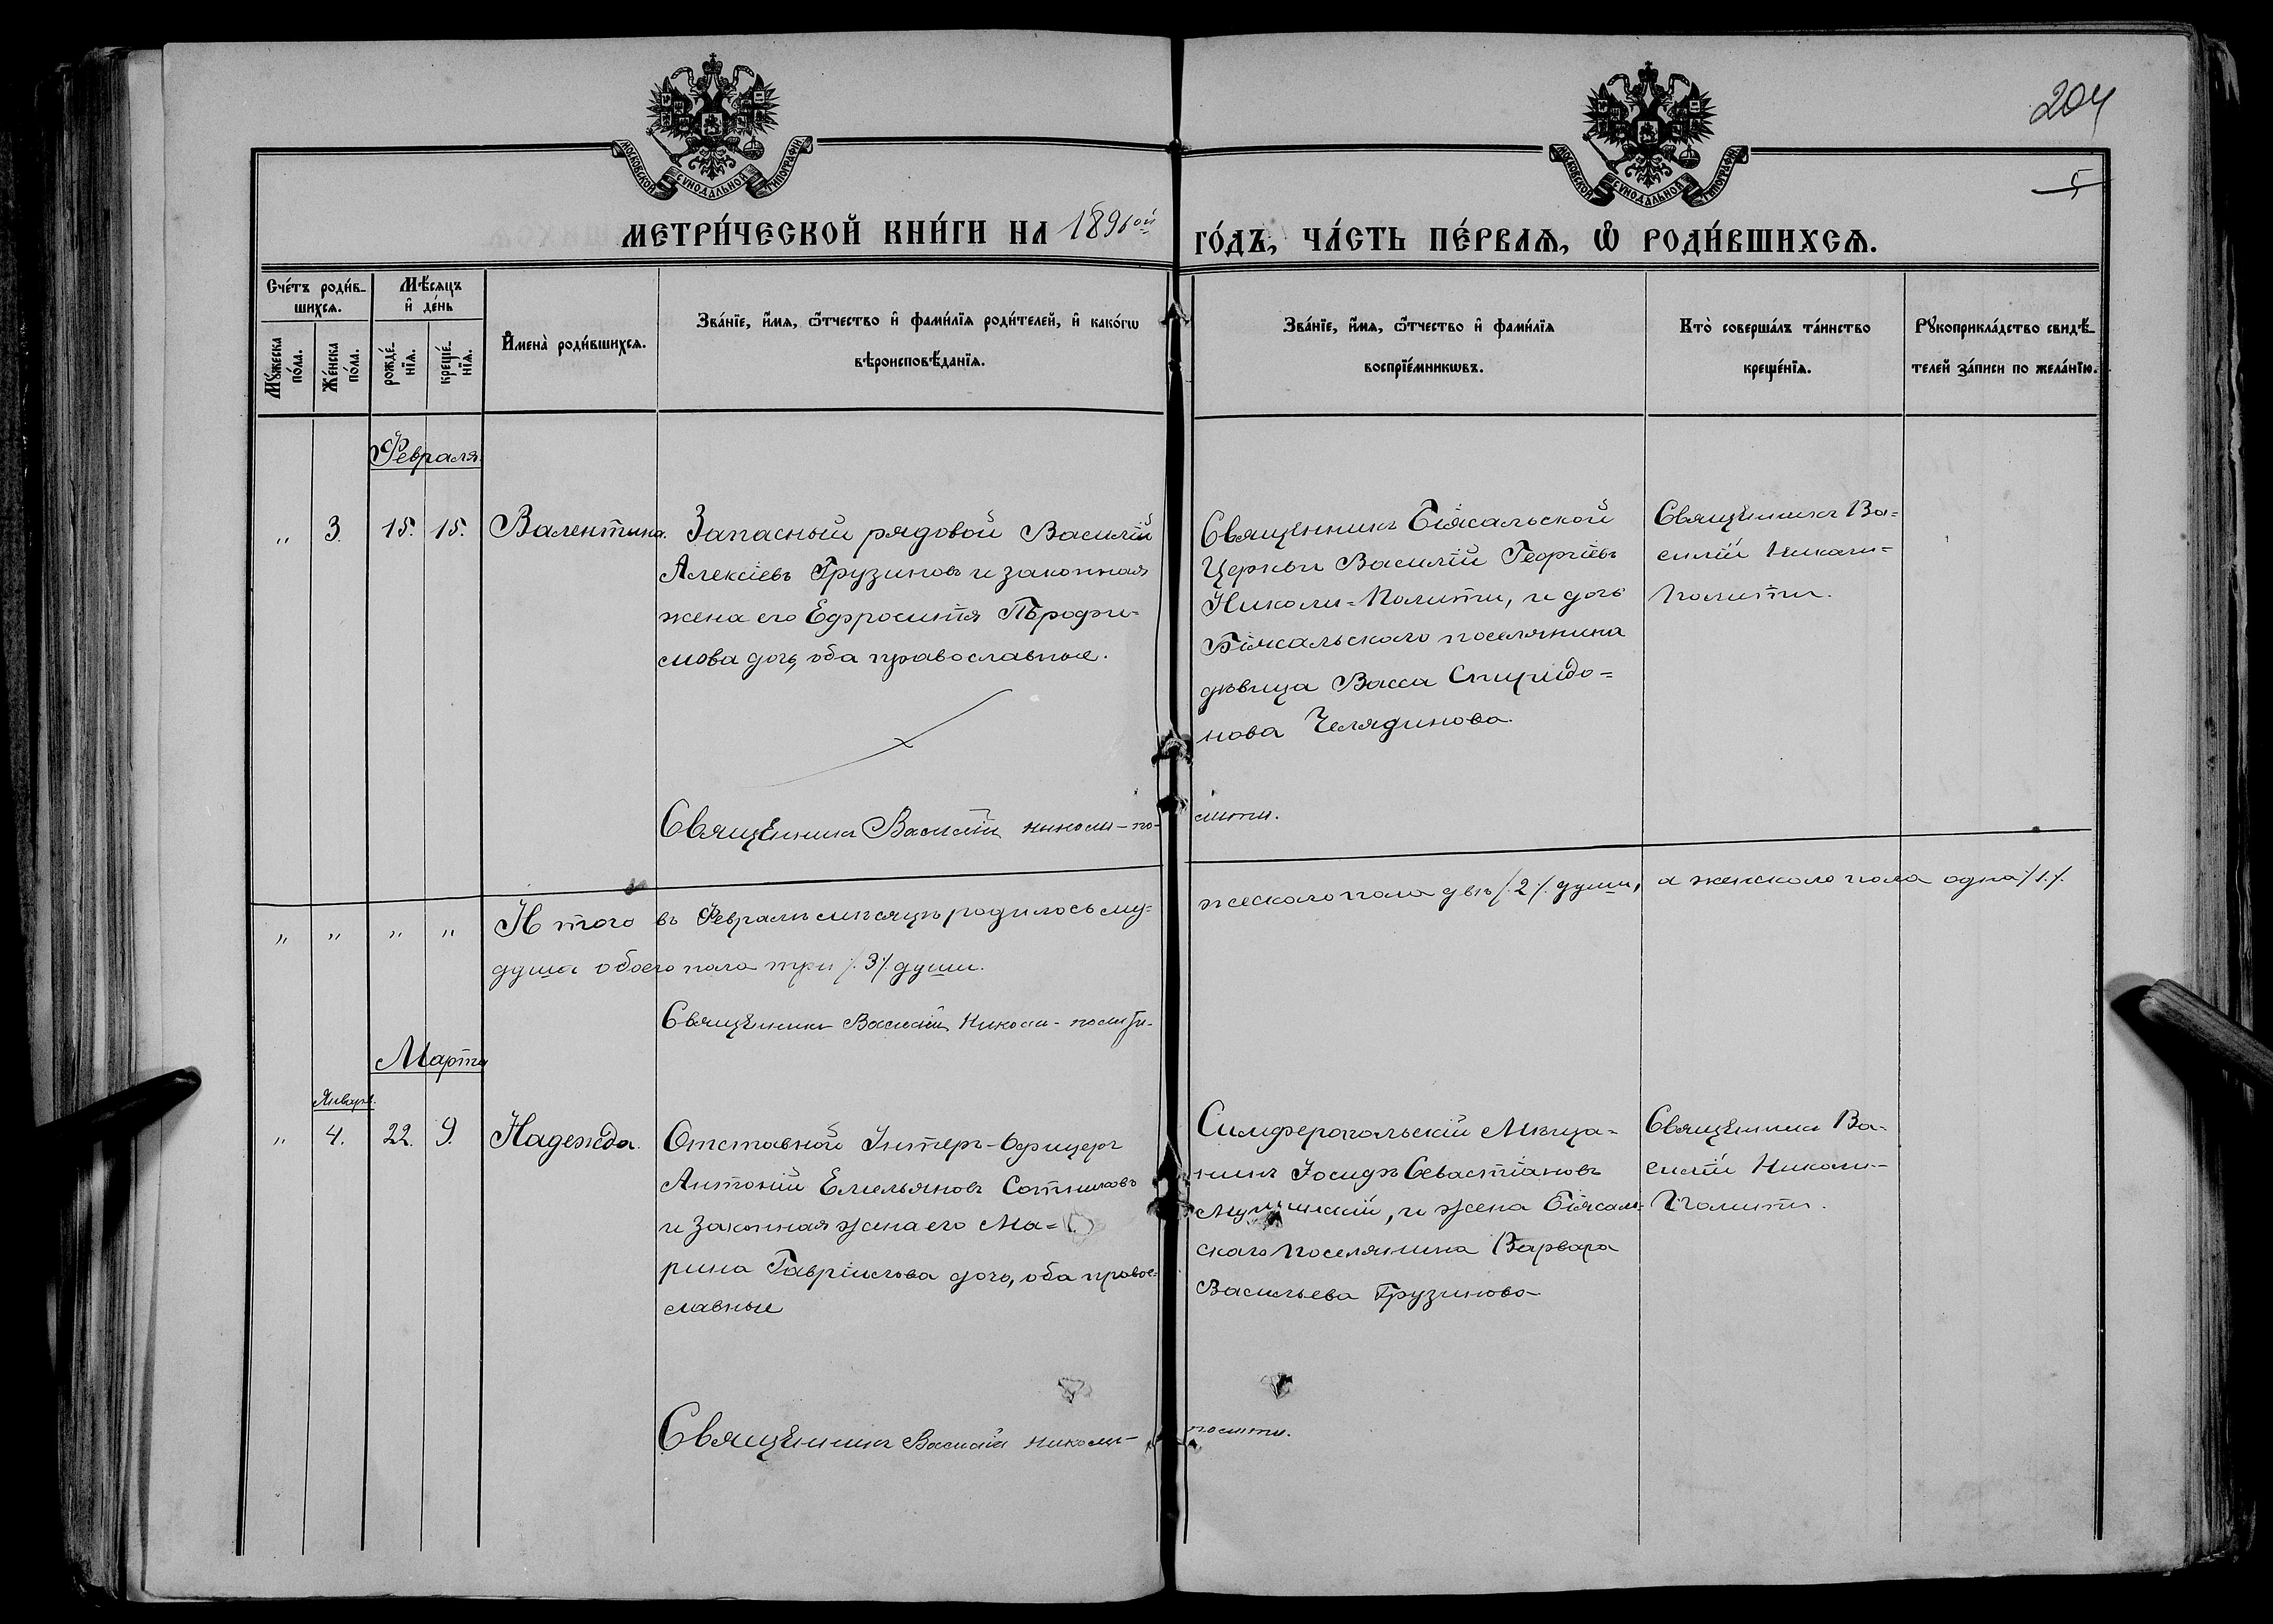 204
5
МОСКОВСКОЙ СѴНОДАЛЬНОЙ ТИПОГРАФІИ
МОСКОВСКОЙ СѴНОДАЛЬНОЙ ТИПОГРАФІИ
МЕТРИ́ЧЕСКОЙ КНИ́ГИ НА 1896ой ГО́ДЪ, ЧА́СТЬ ПЕ́РВАѦ, Ѡ҆ РОДИ́ВШИХСѦ.
Сче́тъ роди́в-
шихсѧ.
Мꙋ́жеска по́ла.
Же́нска по́ла.
Мѣ́сѧцъ
и҆ де́нь
рожде́-
нїѧ.
креще́-
нїѧ.
И҆мена̀ роди́вшихсѧ.
Зва́нїе, и҆́мѧ, ѻ҆́тчество и҆ фами́лїѧ роди́телей, и҆ како́гѡ
вѣроисповѣ́данїѧ.
Зва́нїе, и҆́мѧ, ѻ҆́тчество и҆ фами́лїѧ
воспрїе́мникѡвъ.
Кто̀ соверша́лъ та́инство
креще́нїѧ.
Рꙋкоприкла́дство свидѣ́-
телей за́писи по жела́нїю.
Февраля.
„ 3. 15. 15. Валентина.
Запасный рядовой Василій
Алексіевъ Грузиновъ и законная
жена его Ефросинія Трофи-
мова дочь, оба православные.
Священникъ Біясальской
Церкви Василій Георгіевъ
Николи-Политти, и дочь
Біясальскаго поселянина
дѣвица Васса Спиридо-
нова Челядинова
Священникъ Ва-
силій Николи-
Политти.
Священникъ Василій Николи-по-литти.
„ „ „ „ Итого въ Февралѣ мѣсяцѣ родилось му-жескаго пола двѣ /.2./ души, а женскаго пола одна /.1./.
душа обоего пола три /.3./ души.
Священникъ Василій Николи-политти-
Марта
Января.
„ 4. 22. 9. Надежда.
Отставной Унтеръ-Офицеръ
Антоній Емельяновъ Сотниковъ
и законная жена его Ма-
рина Гавріилова дочь, оба право-
славные
Симферопольскій Мѣща-
нинъ Іосифъ Севастіановъ
и жена Біясаль-
скаго поселянина Варвара
Васильева Грузинова
Священникъ Ва-
силій Николи-
Политти.
Священникъ Василій Николи-политти.